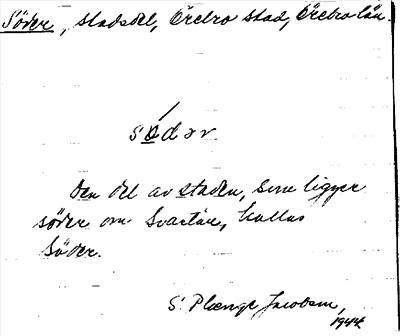 Söder, stadsdel, Örebro stad, Örebro län.
sö́dər
Den del av staden, som ligger
söder om Svartån, kallas
Söder.
S. Plænge Jacobson,
1944.